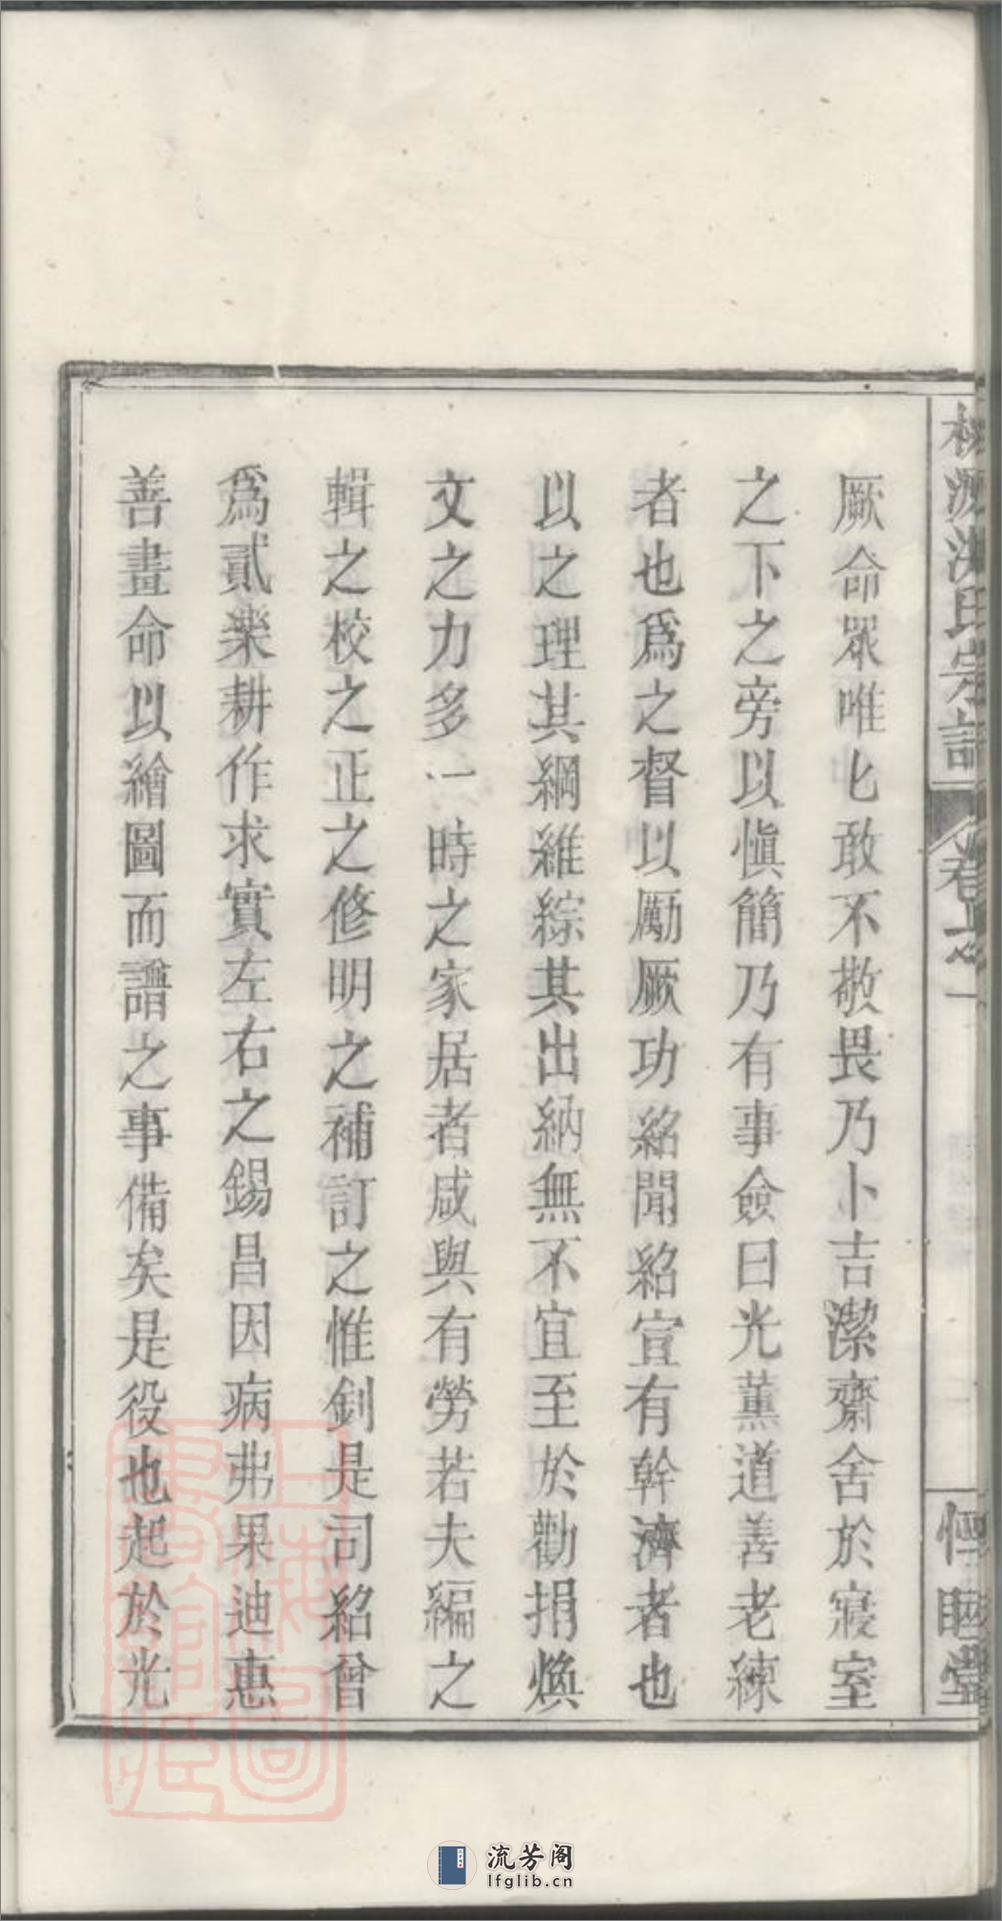 厥命眾唯匕敢不敬畏乃卜吉潔齋舍於寢室
之下之旁以慎簡乃有事僉曰光薰道善老練
者也爲之督以勵厥功紹聞紹宣有幹濟者也
以之理其綱維綜其出納無不宜至於勸捐煥
文之力多一時之家居者咸與有勞若夫編之
輯之校之正之修明之補訂之惟釗是司紹曾
爲貳樂耕作求實左右之錫昌因病弗果迪惠
善畫命以繪圖而譜之事備矣是役也起於光
源洪氏宗譜
卷之一
睦堂
上海圖書館藏
流芳阁
lfglib.cn